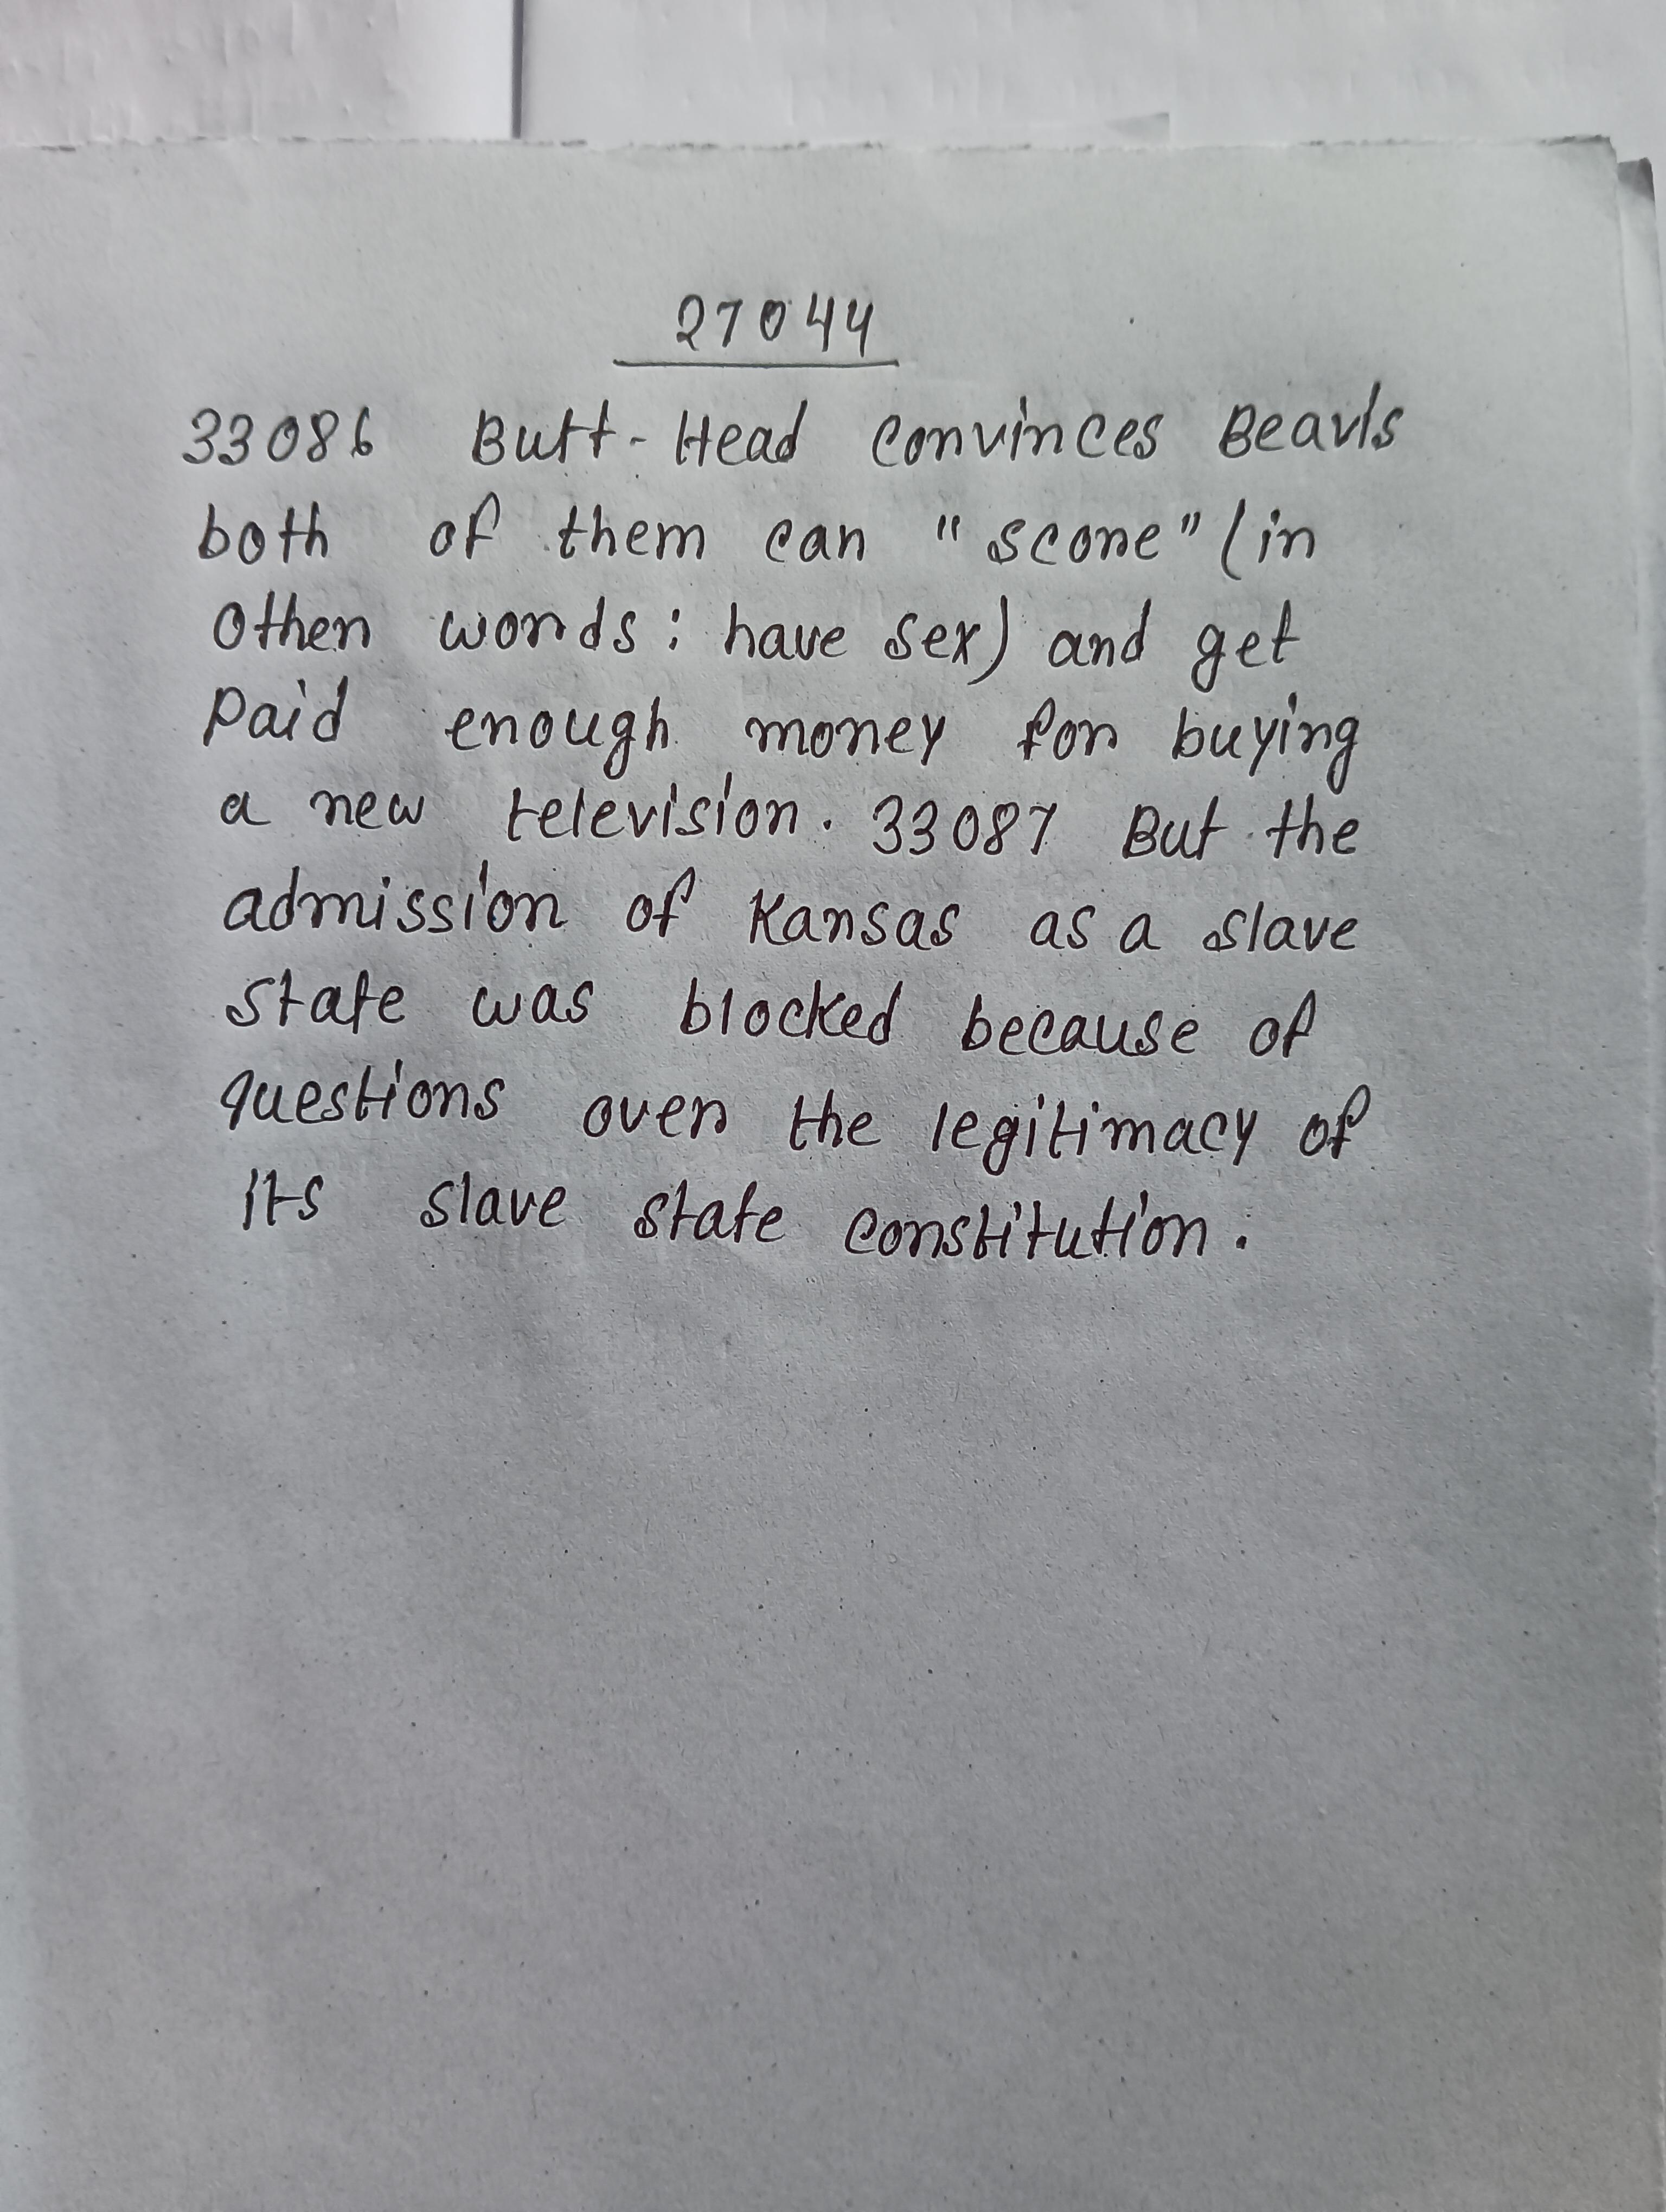 27044
33086 Butt-Head convinces Beavis
both of them can "score" (in
other words: have sex) and get
paid enough money for buying
a new television. 33087 But the
admission of Kansas as a slave
state was blocked because of
questions over the legitimacy of
its slave state constitution.